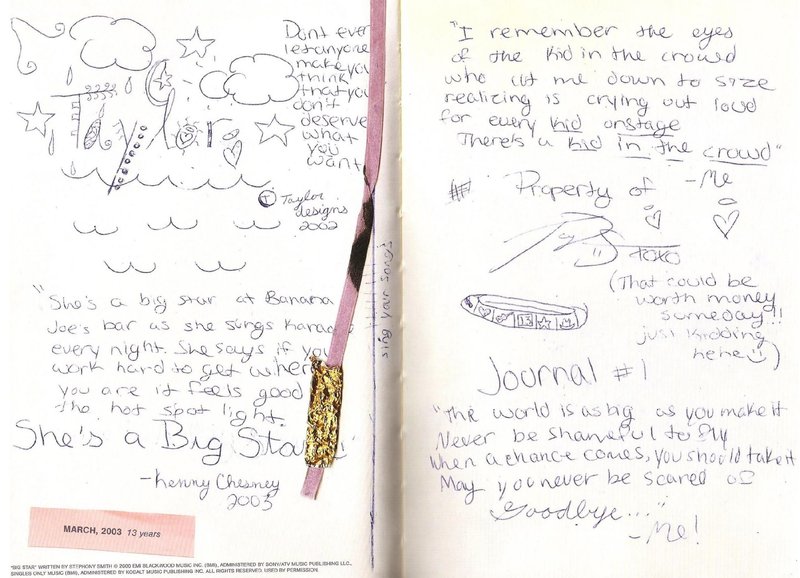 Taylor
Dont ever
let anyone
make you
think
that you
don't
deserve
what
you
want
T Taylor
designs
2002
"She's a big star at Banana
Joe's bar as she sings Karao
every night. She says if you
work hard to get where
you are it feels good
tho hot spot light.
She's a Big Star!
-Kenny Chesney
2003
MARCH, 2003 13 years
"BIG STAR" WRITTEN BY STEPHONY SMITH © 2000 EMI BLACKWOOD MUSIC INC. (BMI), ADMINISTERED BY SONY/ATV MUSIC PUBLISHING LLC.,
SINGLES ONLY MUSIC (BMI), ADMINISTERED BY KOBALT MUSIC PUBLISHING INC. ALL RIGHTS RESERVED. USED BY PERMISSION.
sing your songs
"I remember the eyes
of the kid in the crowd
who cut me down to size
realizing is crying out loud
for every kid onstage
There's a kid in the crowd"
-Me
Property of
xoxo
(That could be
worth money
someday!!
just kidding
hehe)
13
Journal #1
"The world is as big as you make it
Never be shameful to fly
When a chance comes, you should take it
May you never be scared of
Goodbye..."
-Me!